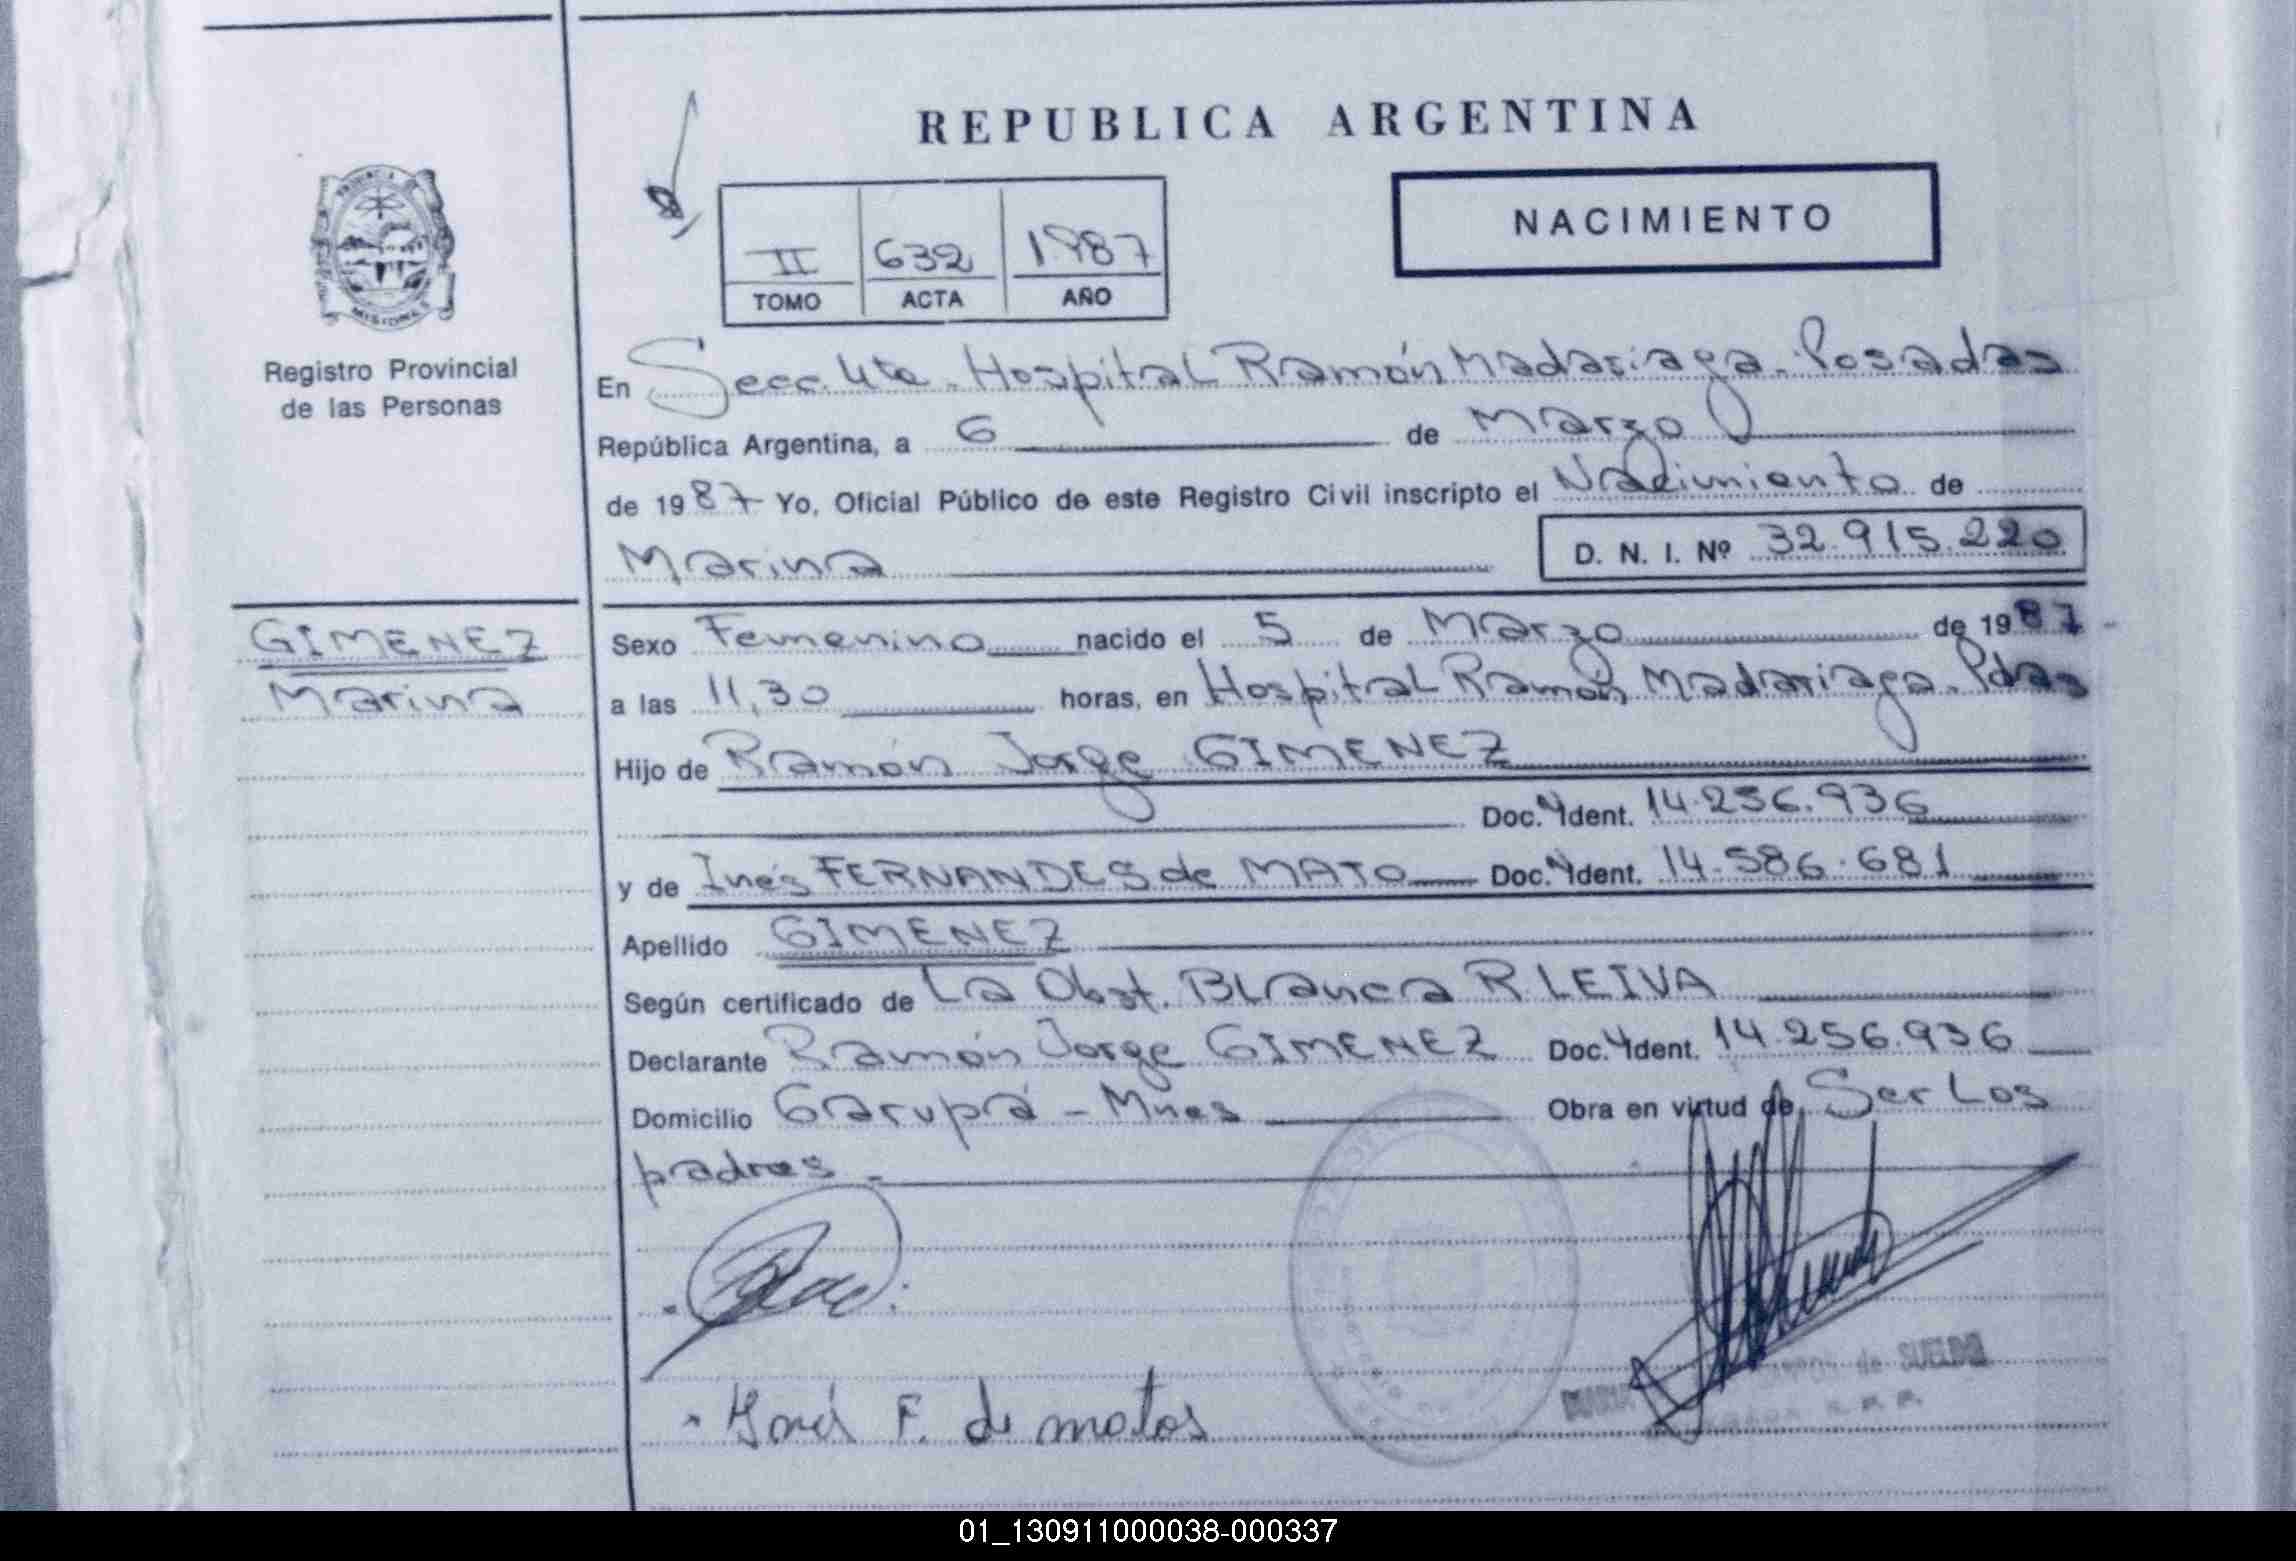 REPUBLICA ARGENTINA
NACIMIENTO
II 632 1987
TOMO ACTA AÑO
PROVINCIA DE
MISIONES
Registro Provincial
de las Personas
En Secc. 4ta. Hospital Ramón Madariaga. Posadas
República Argentina, a 6 de Marzo
de 1987 Yo, Oficial Público de este Registro Civil inscripto el Nacimiento de
Marina D. N. I. Nº 32.915.220
GIMENEZ
Marina
Sexo Femenino nacido el 5 de Marzo de 1987
a las 11,30 horas, en Hospital Ramón Madariaga. Pdas
Hijo de Ramón Jorge GIMENEZ
Doc. Ident. 14.256.936
y de Inés FERNANDES de MATO Doc. Ident. 14.586.681
Apellido GIMENEZ
Según certificado de La Obst. Blanca R. LEIVA
Declarante Ramón Jorge GIMENEZ Doc. Ident. 14.256.936
Domicilio Garupá - Mnes Obra en virtud de Ser Los
padres -
Inés F. de matos
de SUELDO
01_130911000038-000337